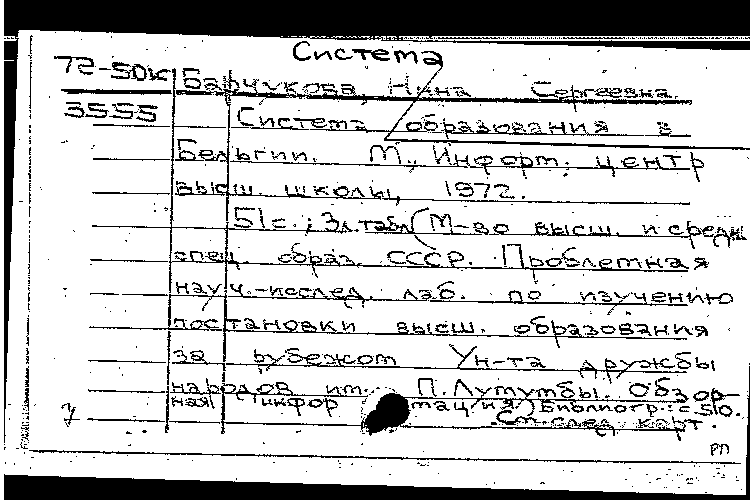 Система
72-50к Барчукова, Нина Сергеевна.
3555 Система образования в
Бельгии. М., Информ. центр
высш. школы, 1972.
51с.; 3л.табл. (М-во высш. и средн
спец. образ. СССР. Проблемная
науч.-исслед. лаб. по изучению
постановки высш. образования
за рубежом Ун-та дружбы
народов им. П.Лумумбы. Обзор-
ная информация) Библиогр.: с.510.
См. след. карт.
РП